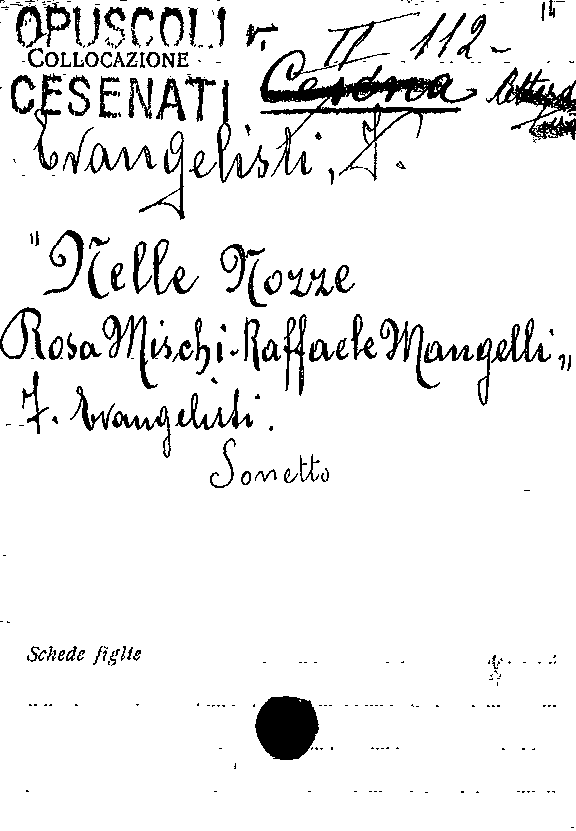 OPUSCOLI r. II 112- 14
COLLOCAZIONE
CESENATI
Evangelisti, F.
"Nelle Nozze
Rosa Mischi-Raffaele Mangelli"
F. Evangelisti.
Sonetto
Schede figlie